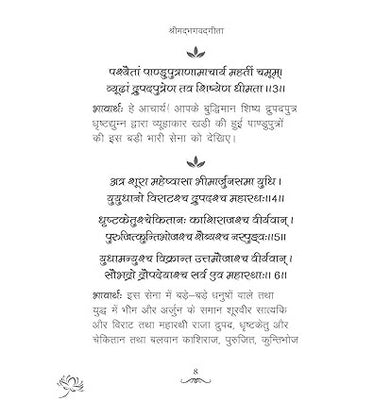 श्रीमदभगवदगीता
पश्यैतां पाण्डुपुत्राणामाचार्य महतीं चमूम्।
व्यूढां द्रुपदपुत्रेण तव शिष्येण धीमता ॥3॥
भावार्थः हे आचार्य! आपके बुद्धिमान शिष्य द्रुपदपुत्र
धृष्टद्युम्न द्वारा व्यूहाकार खड़ी की हुई पाण्डुपुत्रों
की इस बड़ी भारी सेना को देखिए।
अत्र शूरा महेष्वासा भीमार्जुनसमा युधि ।
युयुधानो विराटश्च द्रुपदश्च महारथः॥4॥
धृष्टकेतुश्चेकितानः काशिराजश्च वीर्यवान् ।
पुरुजित्कुन्तिभोजश्च शैब्यश्च नरपुङ्गवः॥5॥
युधामन्युश्च विक्रान्त उत्तमौजाश्च वीर्यवान् ।
सौभद्रो द्रौपदेयाश्च सर्व एव महारथाः॥ 6॥
भावार्थः इस सेना में बड़े-बड़े धनुषों वाले तथा
युद्ध में भीम और अर्जुन के समान शूरवीर सात्यकि
और विराट तथा महारथी राजा द्रुपद, धृष्टकेतु और
चेकितान तथा बलवान काशिराज, पुरुजित, कुन्तिभोज
8